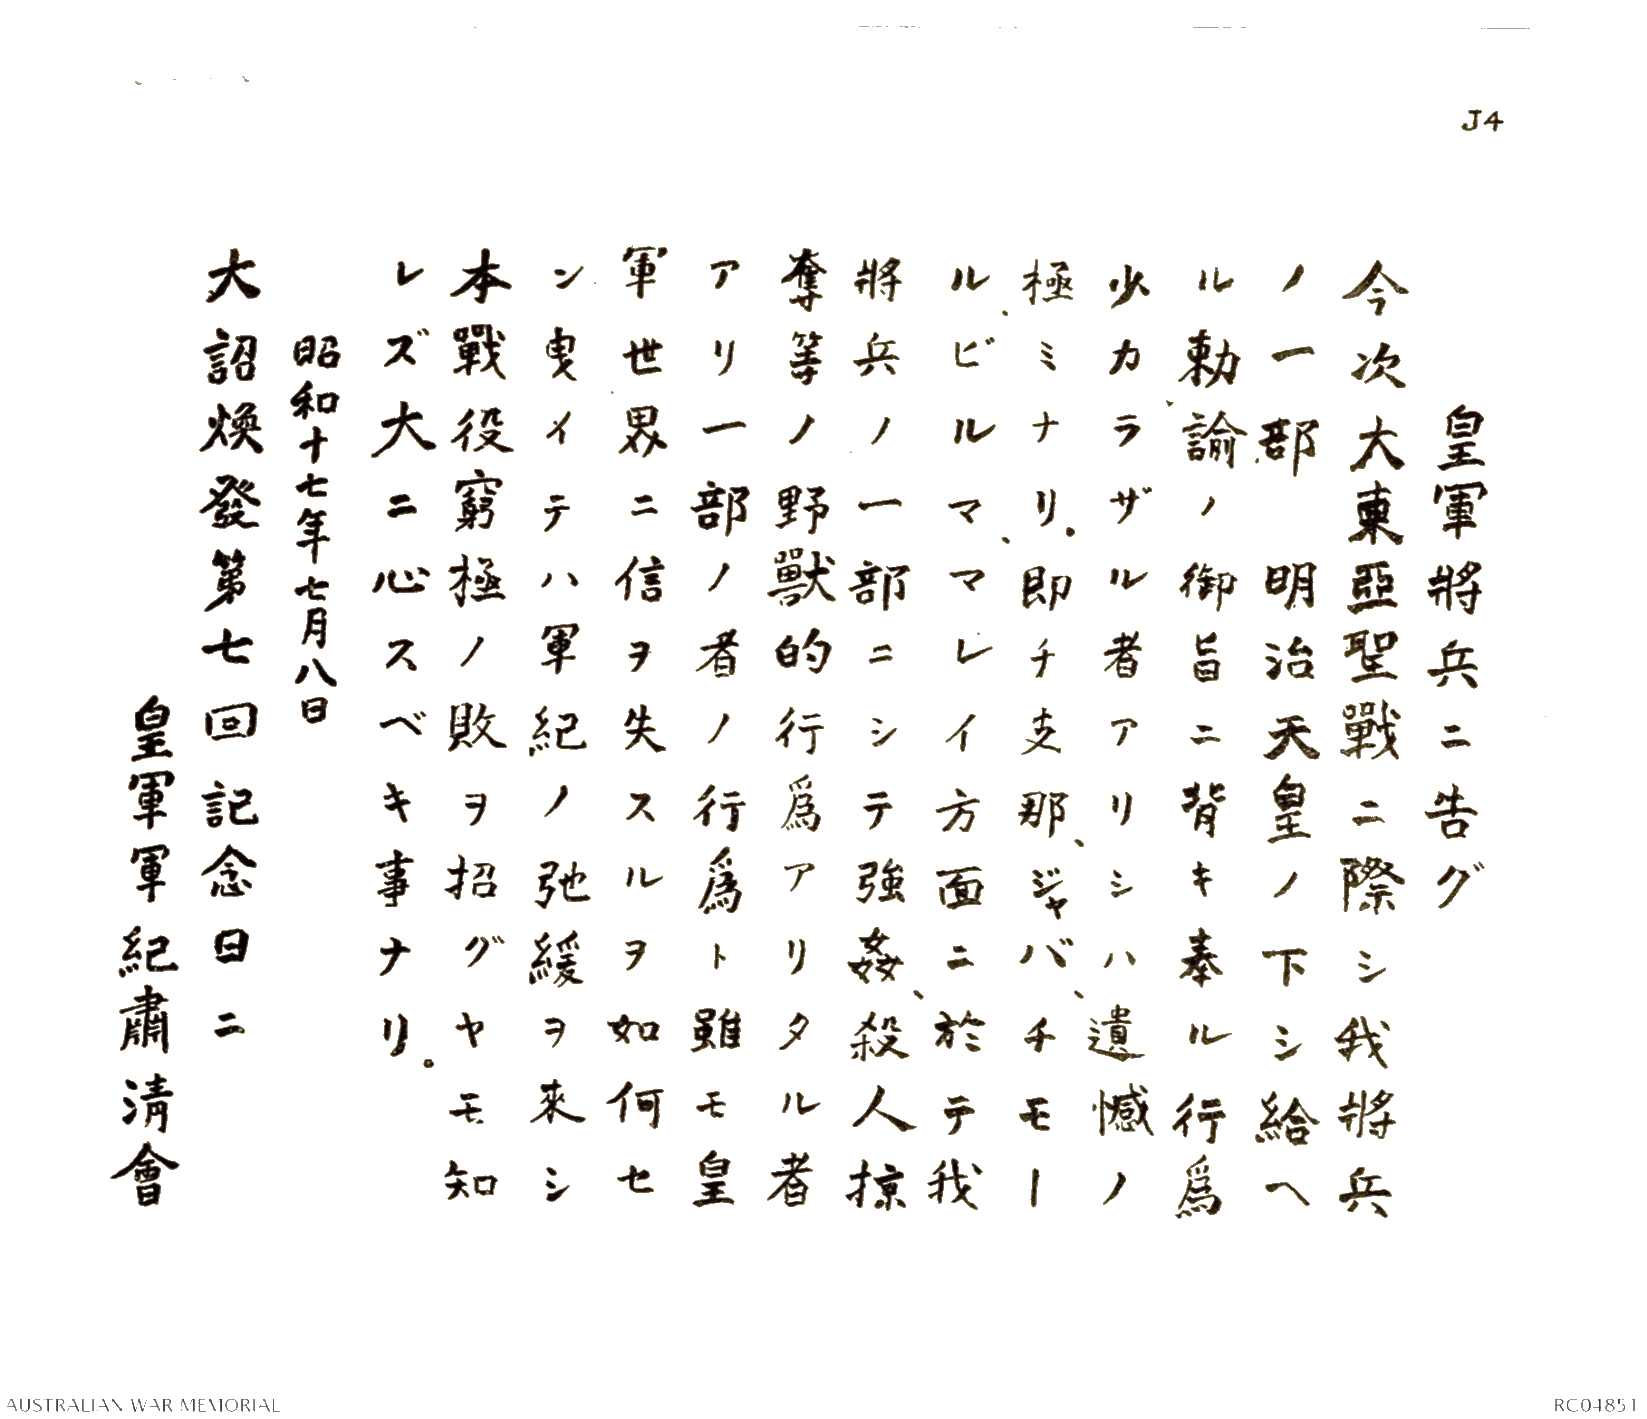 J4
皇軍將兵ニ告グ
今次大東亞聖戰ニ際シ我將兵
ノ一部 明治天皇ノ下シ給ヘ
ル勅諭ノ御旨ニ背キ奉ル行爲
少カラザル者アリシハ、遺憾ノ
極ミナリ。即チ支那、ジャバ、チモー
ル、ビルマ、マレイ方面ニ於テ我
將兵ノ一部ニシテ強姦、殺人掠
奪等ノ野獸的行爲アリタル者
アリ一部ノ者ノ行爲ト雖モ皇
軍世界ニ信ヲ失スルヲ如何セ
ン曳イテハ軍紀ノ弛緩ヲ來シ
本戰役窮極ノ敗ヲ招グヤモ知
レズ大ニ心スベキ事ナリ。
昭和十七年七月八日
大詔煥發第七回記念日ニ
皇軍軍紀肅淸會
AUSTRALIAN WAR MEMORIAL
RC04851